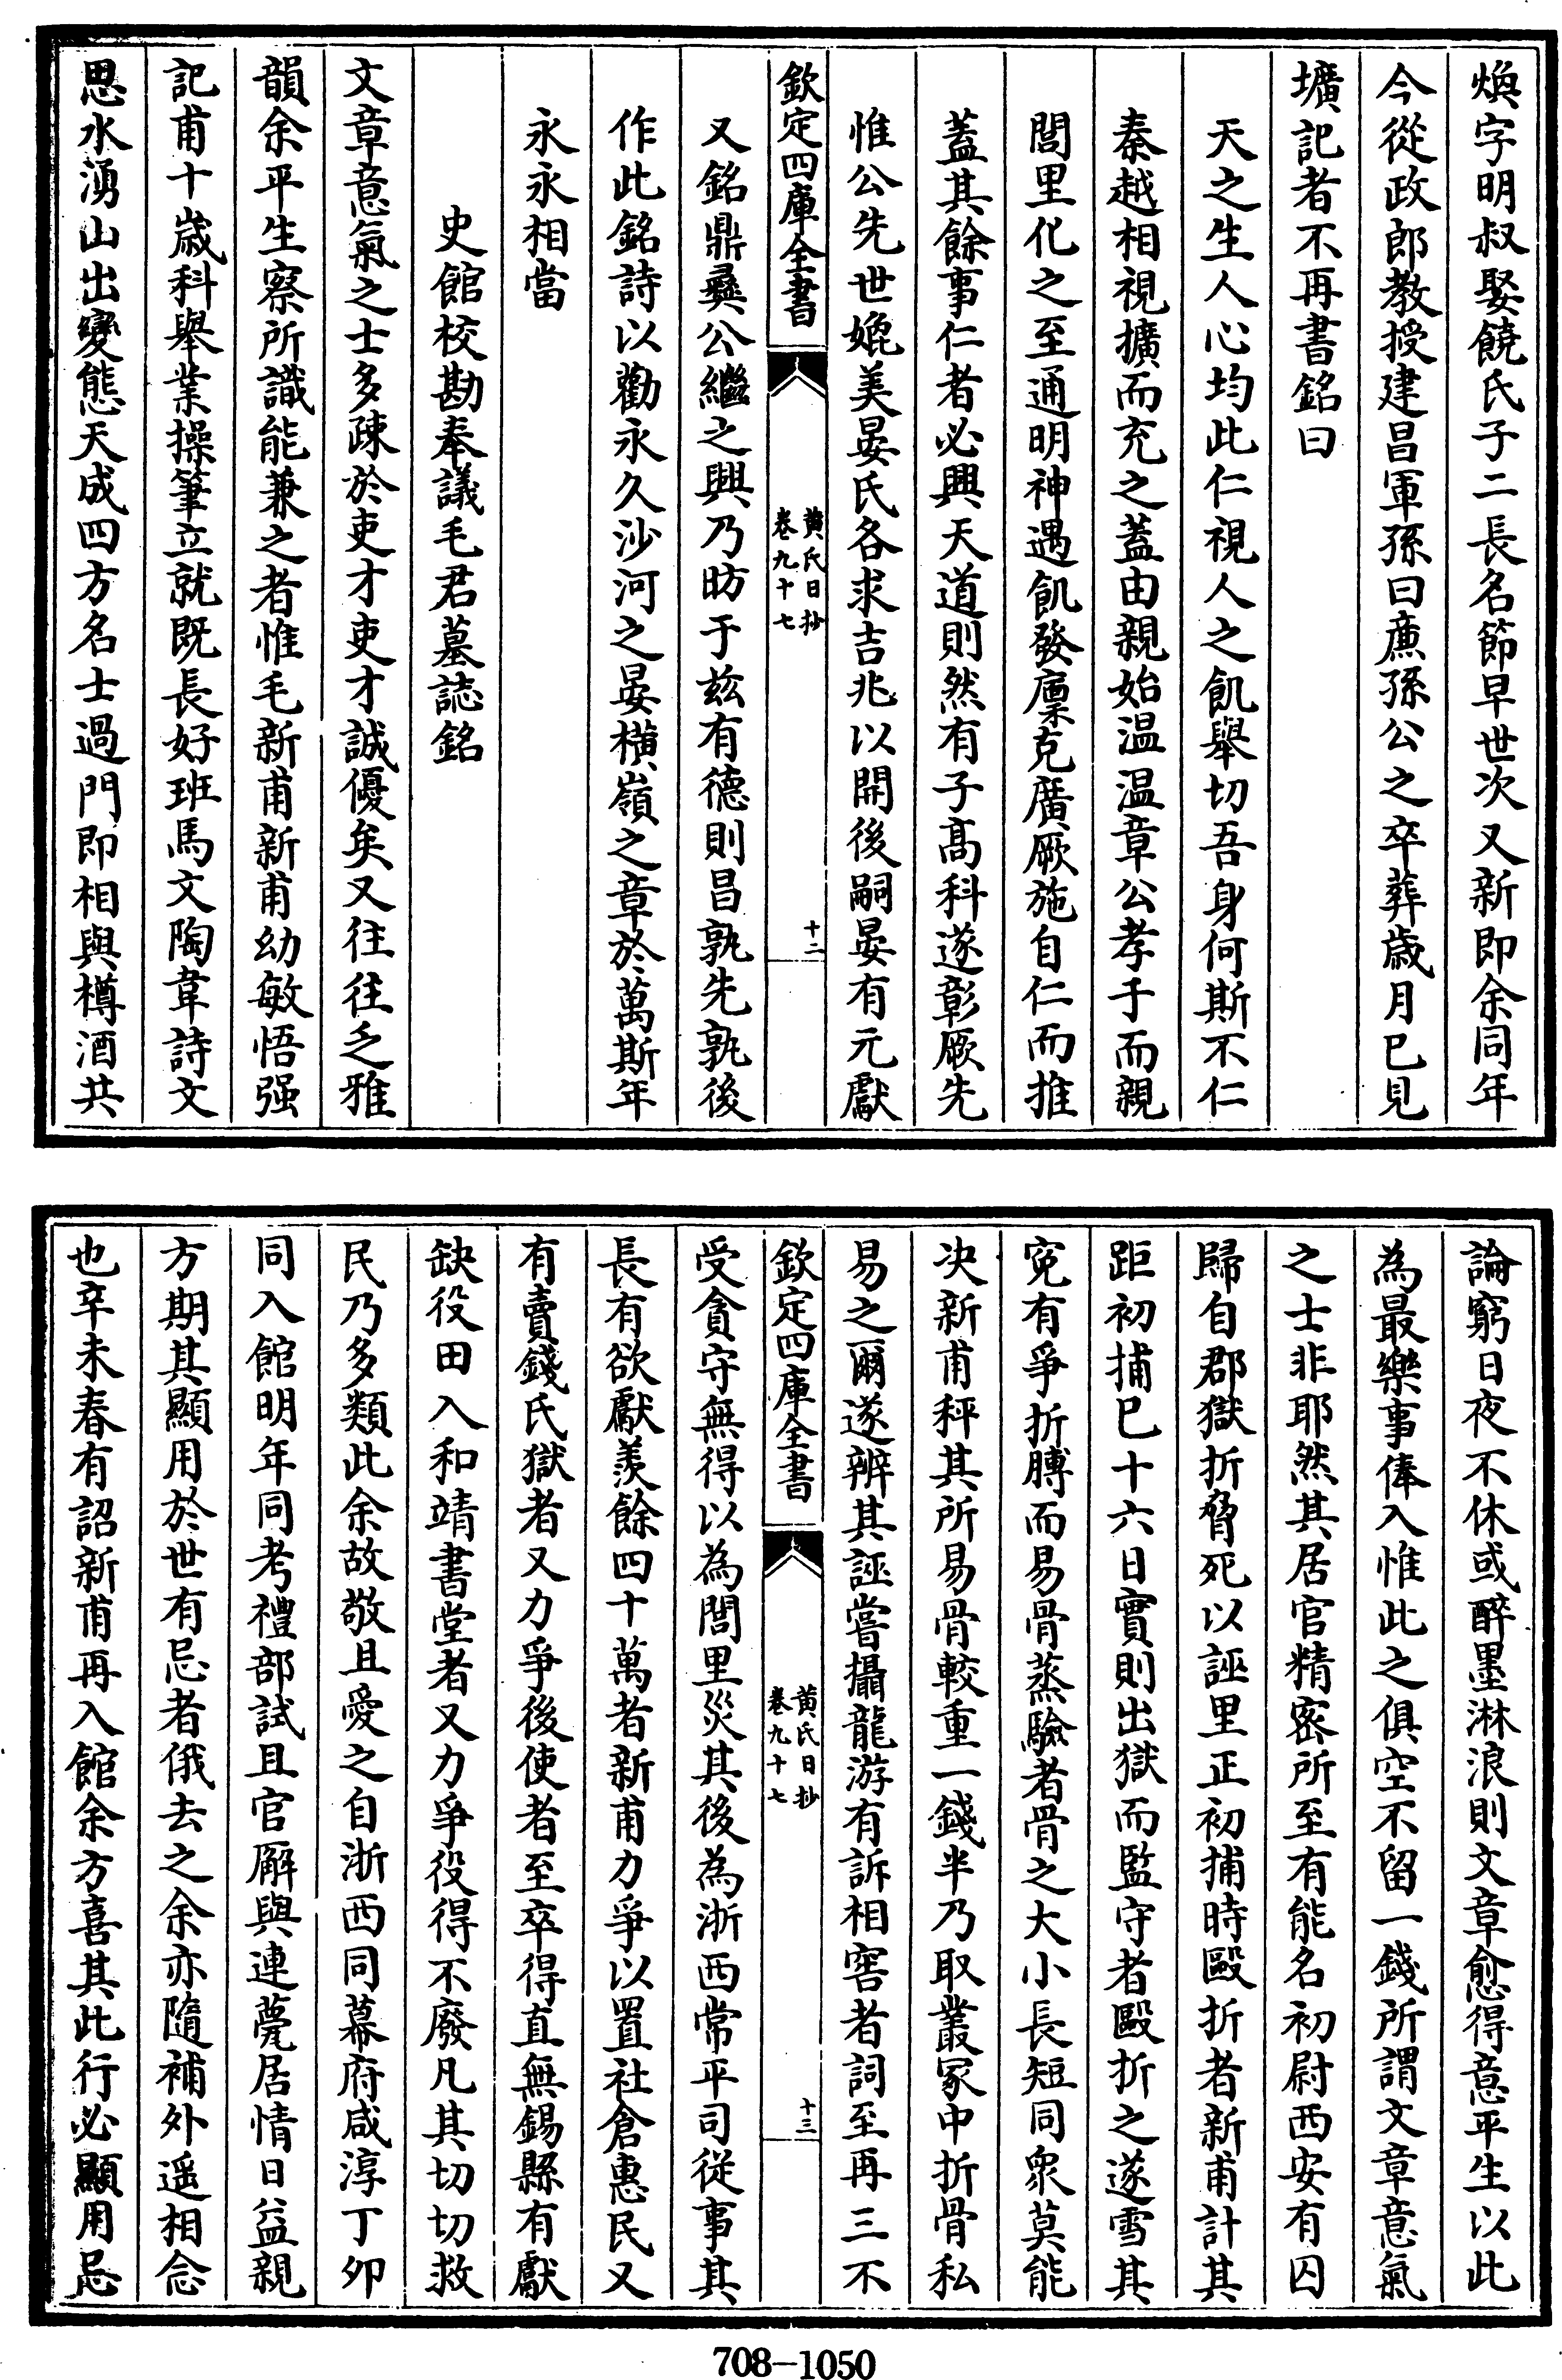 煥字明叔娶饒氏子二長名節早世次又新即余同年
今從政郎教授建昌軍孫曰廌孫公之卒葬歲月已見
壙記者不再書銘曰
天之生人心均此仁視人之飢舉切吾身何斯不仁
秦越相視擴而充之蓋由親始温温章公孝于而親
閭里化之至通明神遇飢發廩克廣厥施自仁而推
蓋其餘事仁者必興天道則然有子高科遂彰厥先
惟公先世媲美晏氏各求吉兆以開後嗣晏有元獻
欽定四庫全書
黄氏日抄
卷九十七
十二
又銘鼎彝公繼之興乃昉于兹有德則昌孰先孰後
作此銘詩以勸永久沙河之晏橫嶺之章於萬斯年
永永相當
史館校勘奉議毛君墓誌銘
文章意氣之士多疎於吏才吏才誠優矣又往往乏雅
韻余平生察所識能兼之者惟毛新甫新甫幼敏悟强
記甫十歲科舉業操筆立就既長好班馬文陶韋詩文
思水湧山出變態天成四方名士過門即相與樽酒共
論窮日夜不休或醉墨淋浪則文章愈得意平生以此
為最樂事俸入惟此之俱空不留一錢所謂文章意氣
之士非耶然其居官精密所至有能名初尉西安有囚
歸自郡獄折脅死以誣里正初捕時毆折者新甫計其
距初捕已十六日實則出獄而監守者毆折之遂雪其
寃有爭折膊而易骨蒸驗者骨之大小長短同衆莫能
决新甫秤其所易骨較重一錢半乃取叢冢中折骨私
易之爾遂辨其誣嘗攝龍游有訴相窖者詞至再三不
欽定四庫全書
黄氏日抄
卷九十七
十三
受貪守無得以為閭里災其後為浙西常平司從事其
長有欲獻羨餘四十萬者新甫力爭以置社倉惠民又
有賣錢氏獄者又力爭後使者至卒得直無錫縣有獻
缺役田入和靖書堂者又力爭役得不廢凡其切切救
民乃多類此余故敬且愛之自浙西同幕府咸淳丁卯
同入館明年同考禮部試且官廨與連甍居情日益親
方期其顯用於世有忌者俄去之余亦隨補外遥相念
也辛未春有詔新甫再入館余方喜其此行必顯用忌
708—1050